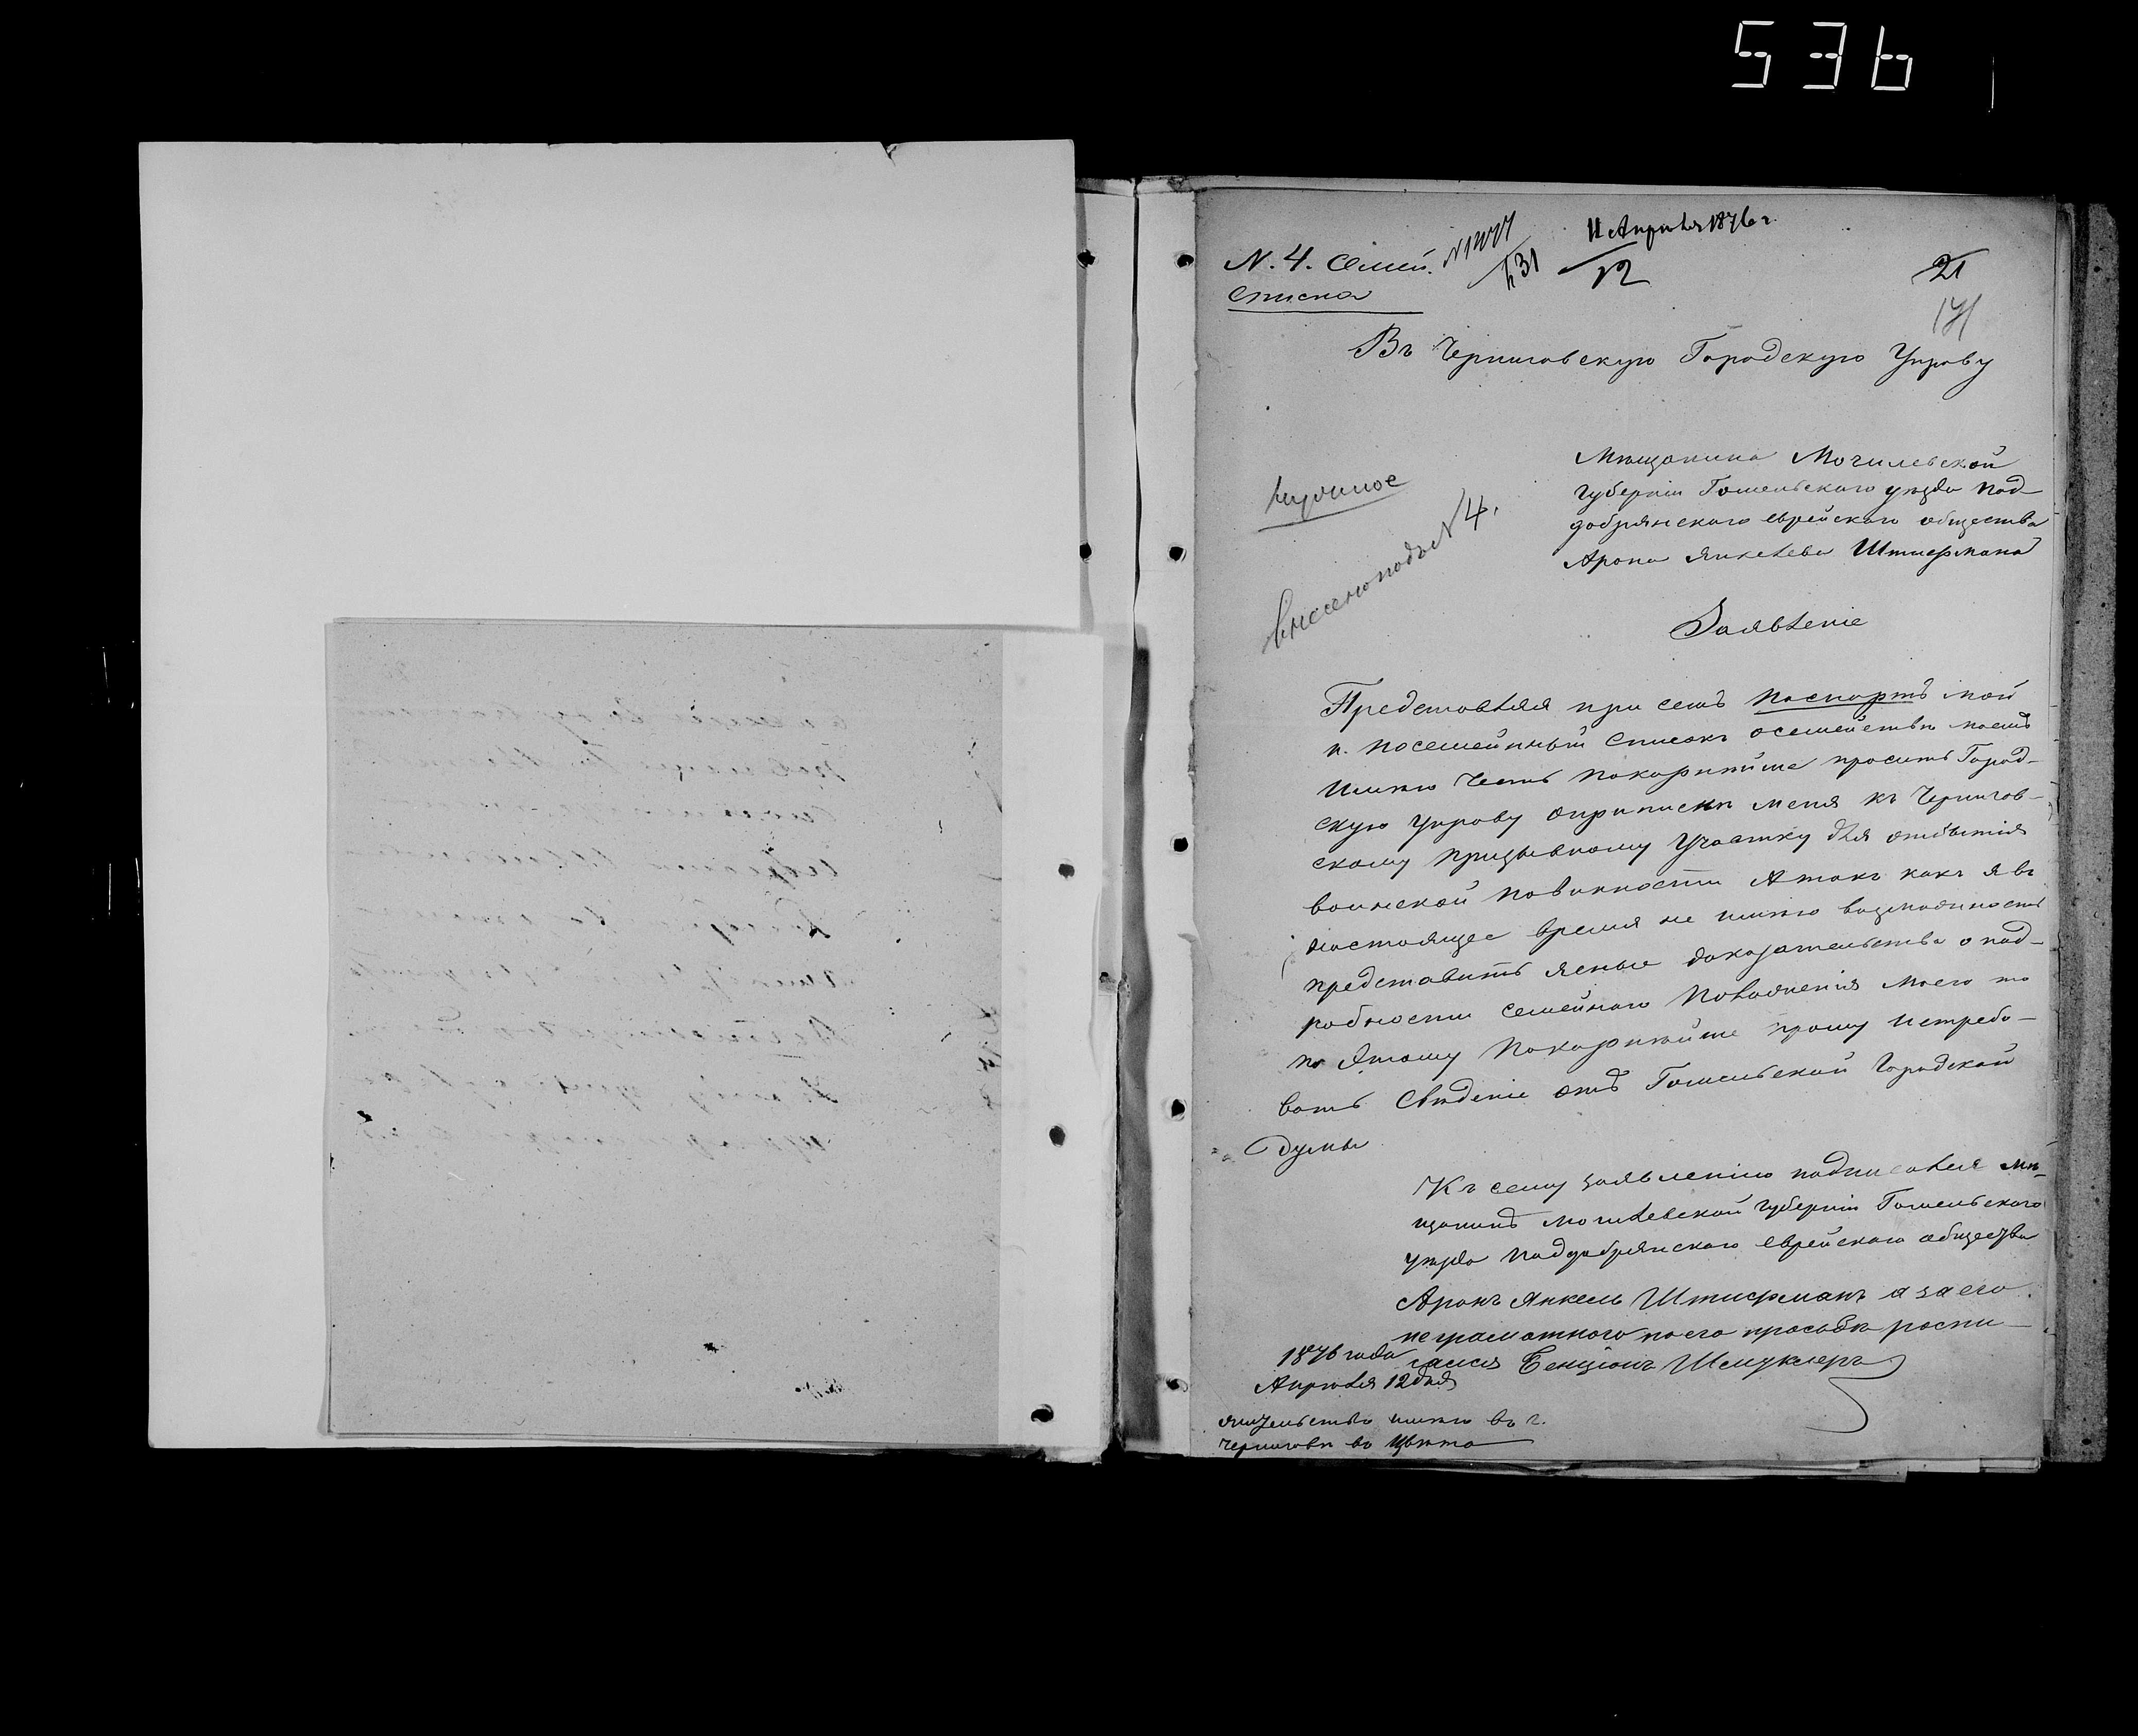 536
N. 4. Семей.
списка
11 Апреля 1876 г.
12
21
Въ Черниговскую Городскую Управу
Мѣщанина Могилевской
губерніи Гомельскаго уѣзда Под
добрянскаго еврейскаго общества
Арона Янкелева Штифмана
внесено подъ N 4.
Заявленіе
Представляя при семъ паспортъ мой
и посемейный списокъ осемействѣ моемъ
имѣю честь покорнѣйше просить Город-
скую управу оприпискѣ меня къ Чернигов-
скому призывному участку для отбытія
воинской повинности А такъ какъ я въ
настоящее время не имѣю возможности
представить ясные доказательства о под-
робности семейнаго положенія моего то
по этому покорнѣйше прошу истребо-
вать свѣденіе отъ Гомельской Городской
Думы
Къ сему заявленію подписался мѣ-
щанинъ Могилевской губерніи Гомельскаго
уѣзда Поддобрянскаго еврейскаго общества
Аронъ Янкель Штифманъ а за его
неграмотного по его просьбѣ роспи-
сался Бенціонъ Шмуклеръ
1876 года
Апрѣля 12 дня
жительство имѣю въ г.
Черниговѣ во